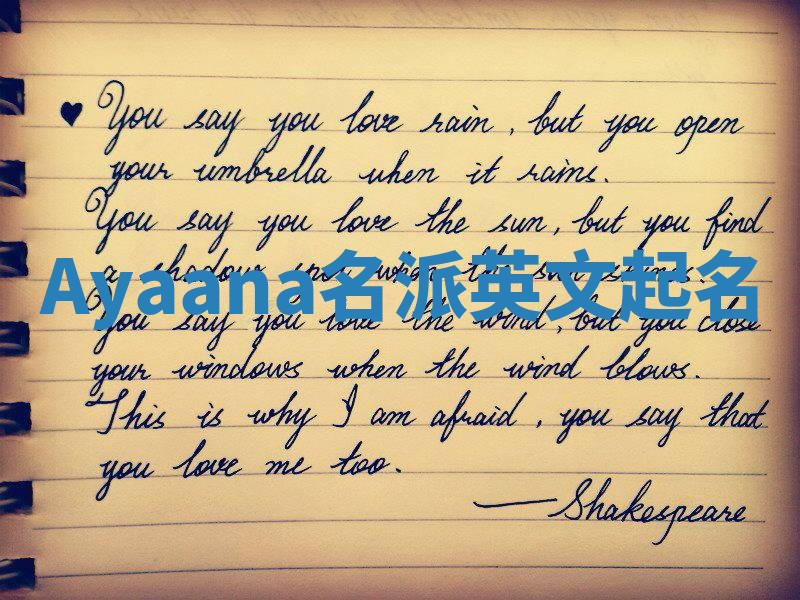 ♥ You say you love rain, but you open
your umbrella when it rains.
You say you love the sun, but you find
a shadow spot when the sun shines.
Ayaana名派英文起名
You say you love the wind, but you close
your windows when the wind blows.
This is why I am afraid, you say that
you love me too.
—Shakespeare